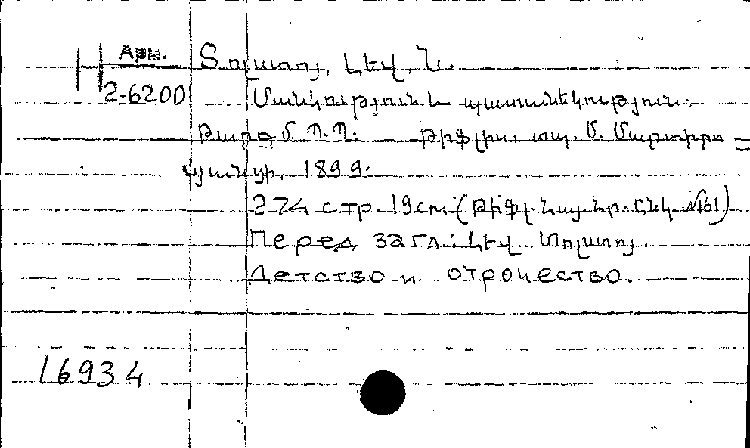 Арм.
2-6200
Տոլստոյ, Լեվ, Ն.
Մանկութ․յուն և պատանեկություն.
Թարգմ. Պ.Պ: Թիֆլիս, տպ. Մ. Մարտիրո-
սյանցի, 1899:
274 стр. 19см. (Թիֆլ. հայ. հր. ընկ. №161)
Перед загл: Լեվ Տոլստոյ.
Детство и отрочество.
16934